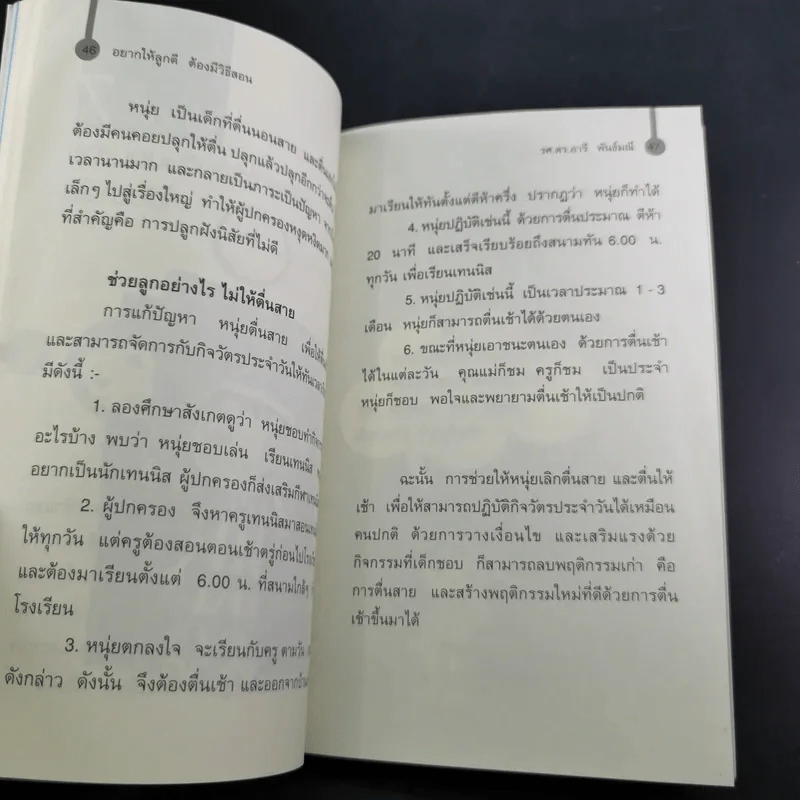 46 อยากให้ลูกดี ต้องมีวิธีสอน
หนุ่ย เป็นเด็กที่ตื่นนอนสาย และตื่น
ต้องมีคนคอยปลุกให้ตื่น ปลุกแล้วปลุกอีกกว่าจะ
เวลานานมาก และกลายเป็นภาระเป็นปัญหา
เล็กๆ ไปสู่เรื่องใหญ่ ทำให้ผู้ปกครองหงุดหงิด
ที่สำคัญคือ การปลูกฝังนิสัยที่ไม่ดี
ช่วยลูกอย่างไร ไม่ให้ตื่นสาย
การแก้ปัญหา หนุ่ยตื่นสาย เพื่อให้
และสามารถจัดการกับกิจวัตรประจำวันให้ทันเวลา
มีดังนี้ :-
1. ลองศึกษาสังเกตดูว่า หนุ่ยชอบทำ
อะไรบ้าง พบว่า หนุ่ยชอบเล่น เรียนเทนนิส
อยากเป็นนักเทนนิส ผู้ปกครองก็ส่งเสริมกีฬา
2. ผู้ปกครอง จึงหาครูเทนนิสมาสอน
ให้ทุกวัน แต่ครูต้องสอนตอนเช้าตรู่ก่อนไป
และต้องมาเรียนตั้งแต่ 6.00 น. ที่สนามใกล้ๆ
โรงเรียน
3. หนุ่ยตกลงใจ จะเรียนกับครู ตามวัน
ดังกล่าว ดังนั้น จึงต้องตื่นเช้า และออกจาก
รศ.ดร.อารี พันธ์มณี 47
มาเรียนให้ทันตั้งแต่ตีห้าครึ่ง ปรากฏว่า หนุ่ยก็ทำได้
4. หนุ่ยปฏิบัติเช่นนี้ ด้วยการตื่นประมาณ ตีห้า
20 นาที และเสร็จเรียบร้อยถึงสนามทัน 6.00 น.
ทุกวัน เพื่อเรียนเทนนิส
5. หนุ่ยปฏิบัติเช่นนี้ เป็นเวลาประมาณ 1 - 3
เดือน หนุ่ยก็สามารถตื่นเช้าได้ด้วยตนเอง
6. ขณะที่หนุ่ยเอาชนะตนเอง ด้วยการตื่นเช้า
ได้ในแต่ละวัน คุณแม่ก็ชม ครูก็ชม เป็นประจำ
หนุ่ยก็ชอบ พอใจและพยายามตื่นเช้าให้เป็นปกติ
ฉะนั้น การช่วยให้หนุ่ยเลิกตื่นสาย และตื่นให้
เช้า เพื่อให้สามารถปฏิบัติกิจวัตรประจำวันได้เหมือน
คนปกติ ด้วยการวางเงื่อนไข และเสริมแรงด้วย
กิจกรรมที่เด็กชอบ ก็สามารถลบพฤติกรรมเก่า คือ
การตื่นสาย และสร้างพฤติกรรมใหม่ที่ดีด้วยการตื่น
เช้าขึ้นมาได้